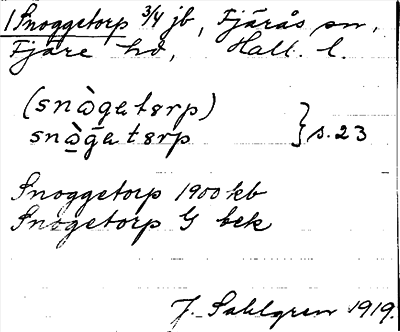 1 Snoggetorp 3/4 jb, Fjärås sn,
Fjäre hd, Hall. l.
(snὰgatɵrp)
snὰ̱gatɵrp } s. 23
Snoggetorp 1900 kb
Snogetorp G bek
J. Sahlgren 1919.